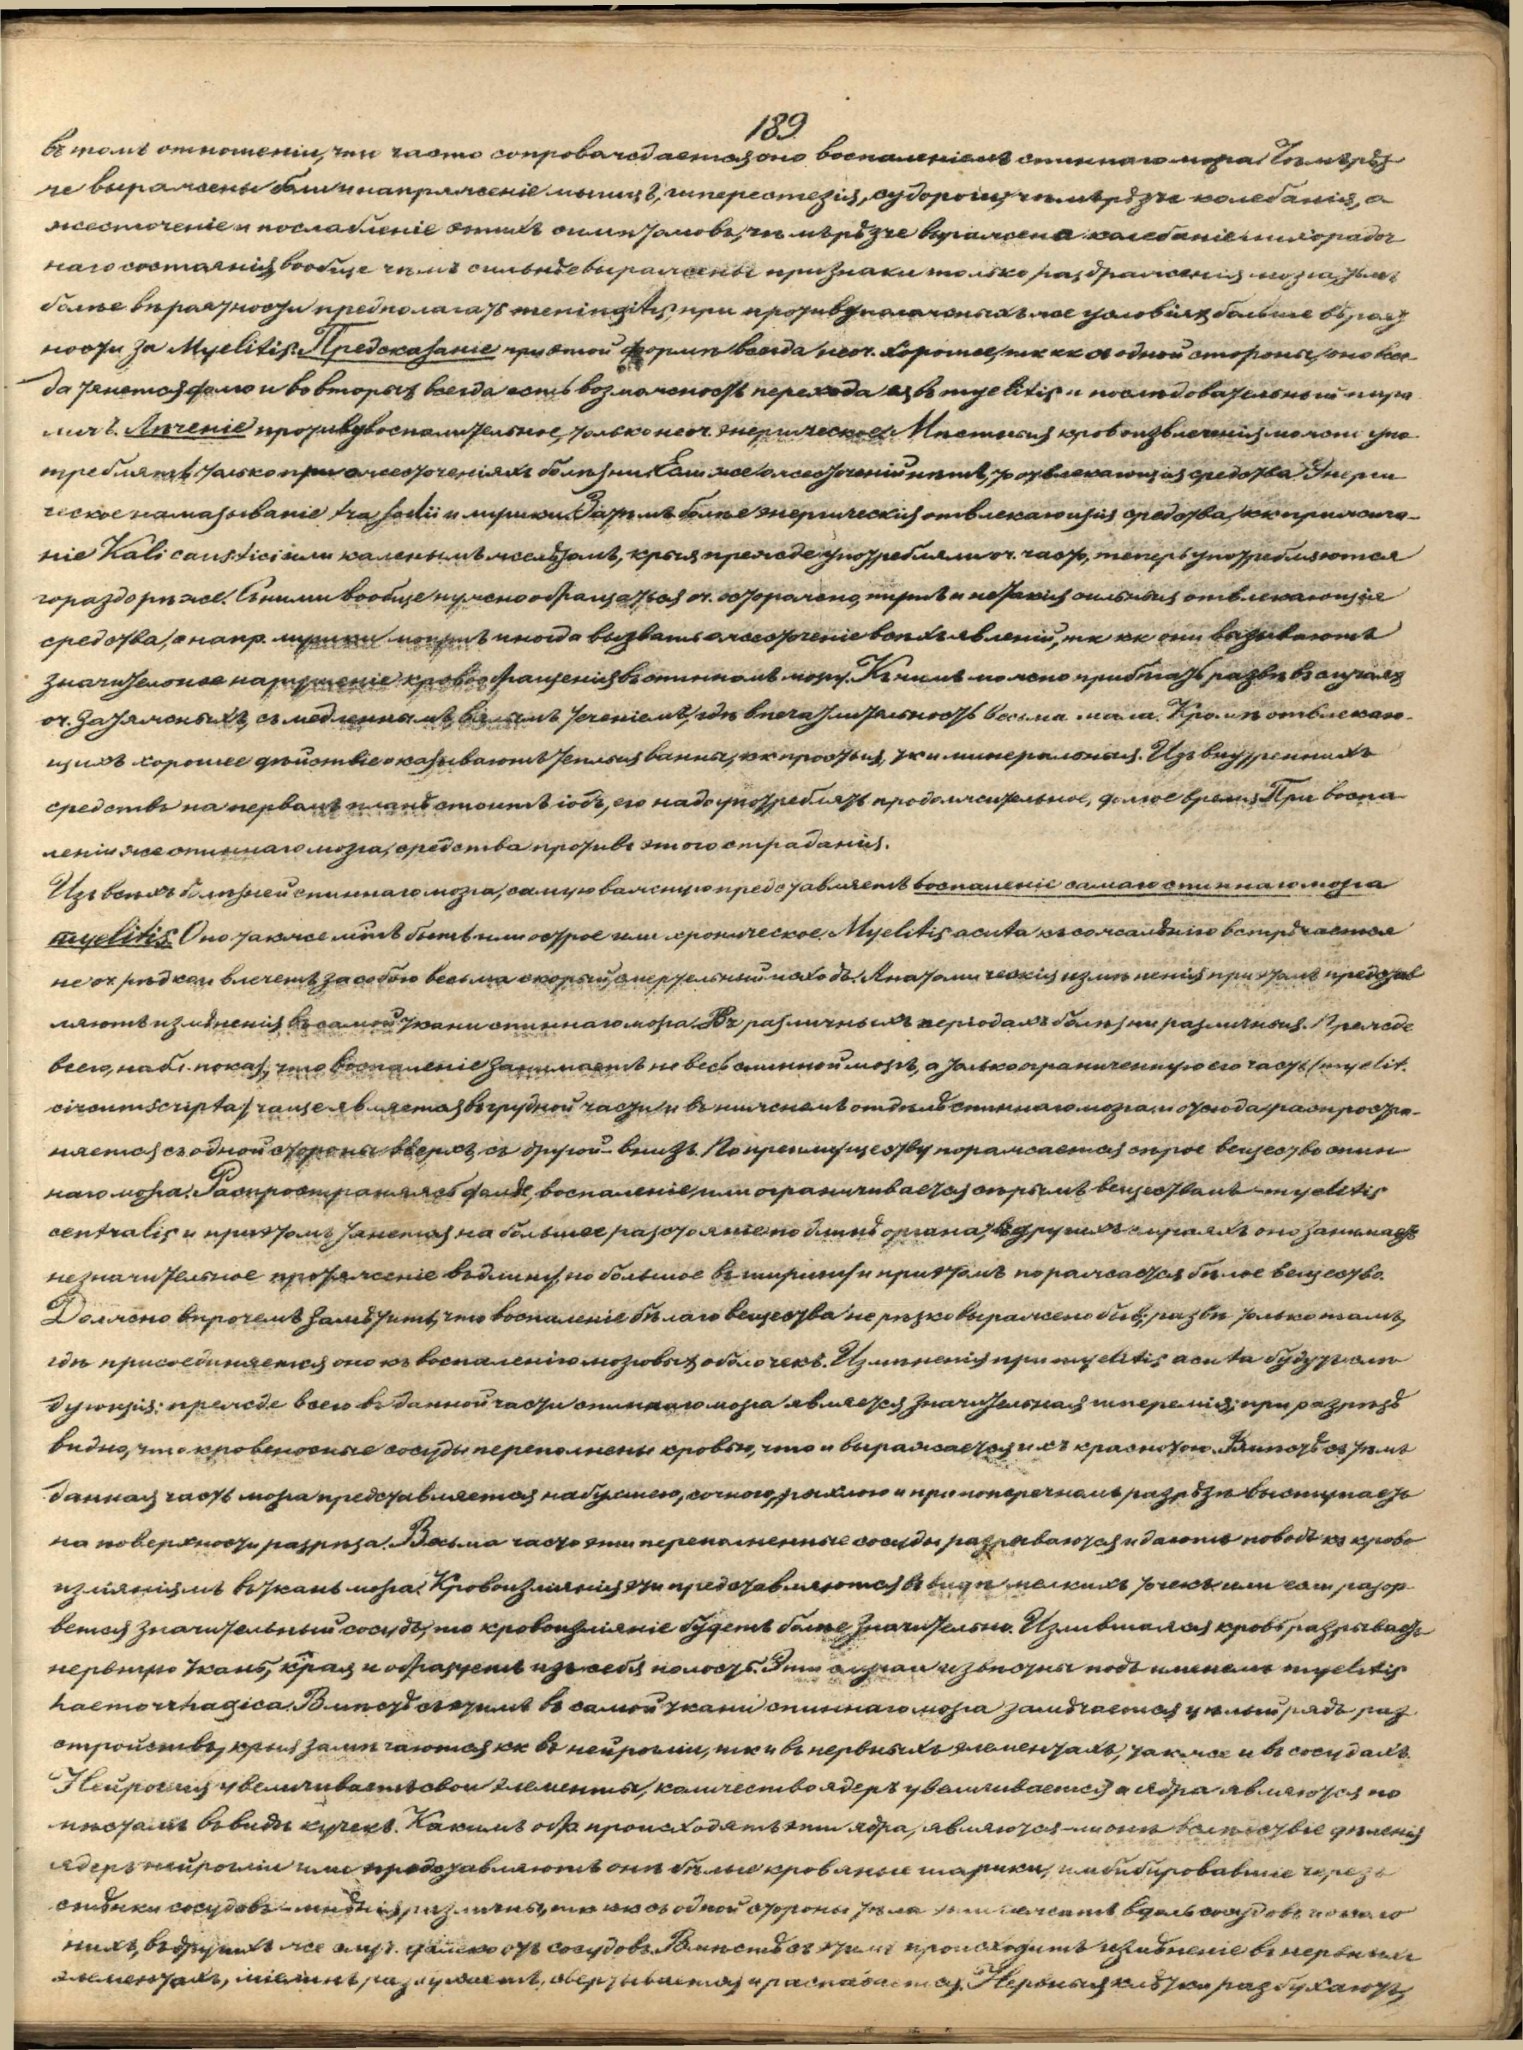 189
въ томъ отношеніи, что часто сопровождается оно воспаленіемъ спиннаго мозга. Чѣмъ рѣз
че выражены боли и напряженіе мышцъ, гиперестезія, судороги, чѣмъ рѣзче колебанія, о
жесточеніе и послабленіе этихъ симптомовъ, чѣмъ рѣзче выражена колебаніе лихорадоч
наго состоянія, вообще чѣмъ сильнѣе выражены признаки только раздраженія мозга, тѣмъ
болѣе вѣроятности предполагать meningitis, при противуположныхъ же условіяхъ больше вѣроят
ности за Myelitis. Предсказаніе при этой формѣ всегда неоч. хорошее, тк кк съ одной стороны, оно все
да тянется долго и во вторыхъ всегда есть возможность перехода ея въ myelitis и послѣдовательный пара
личъ. Лѣченіе противувоспалительное, только неоч. энергическое. Мѣстныя кровоизвлеченія можно упо
треблять только при ожесточеніяхъ болѣзни. Если же ожесточеній нѣтъ, то отвлекающія средства. Энерги
ческое намазываніе tra Jodii и мушки. Затѣмъ болѣе энергическія отвлекающія средства, кк прижига-
ніе Kali caustici или каленымъ желѣзомъ, крыя прежде употребляли оч. часто, теперь употребляются
гораздо рѣже. Съ ними вообще нужно обращаться оч. осторожно, и не такія сильныя отвлекающія
средства, а напр. мушки могутъ иногда вызвать ожесточеніе всѣхъ явленій, тк кк они вызываютъ
значительное нарушеніе кровообращенія въ спинномъ мозгу. Къ нимъ можно прибѣгать развѣ въ случаяхъ
оч. затяжныхъ, съ медленнымъ, вялымъ теченіемъ, гдѣ впечатлительность весьма мала. Кромѣ отвлекаю-
щихъ хорошее дѣйствіе оказываютъ теплыя ванны, кк простыя, тк и минеральныя. Изъ внутреннихъ
средствъ на первомъ планѣ стоитъ іодъ, его надо употреблять продолжительное, долгое время. При воспа
леніи же спиннаго мозга, средства противъ этого страданія.
Изъ всѣхъ болѣзней спиннаго мозга, самую важную представляетъ воспаленіе самаго спиннаго мозга
myelitis. Оно также мжтъ быть или острое или хроническое. Myelitis acuta къ сожалѣнію встрѣчается
не оч рѣдко и влечетъ за собою весьма скорый, смертельный исходъ. Анатомическія измѣненія при этомъ представ
ляютъ измѣненія въ самой ткани спиннаго мозга. Въ различныхъ періодахъ болѣзни различныя. Прежде
всего, набл. показ., что воспаленіе занимаетъ не весь спинной мозгъ, а только ограниченную его часть (myelit.
circumscripta) чаще является въ грудной части и въ нижнемъ отдѣлѣ спиннаго мозга, и отсюда распростра-
няется съ одной стороны вверхъ, съ другой - внизъ. По преимуществу поражается сѣрое вещество спин
наго мозга. Распространяясь далѣе, воспаленіе или ограничивается сѣрымъ веществомъ - myelitis
centralis и при этомъ тянется на большее разстояніе по длинѣ органа, въ другихъ случаяхъ оно занимаетъ
незначительное протяженіе въ длину, но большое въ ширину и при этомъ поражается бѣлое вещество.
Должно впрочемъ замѣтить, что воспаленіе бѣлаго вещества не рѣзко выражено бываетъ, развѣ только тамъ,
гдѣ присоединяется оно къ воспаленію мозговыхъ оболочекъ. Измѣненія при myelitis acuta будутъ слѣ
дующія: прежде всего въ данной части спиннаго мозга является значительная гиперемія; при разрѣзѣ
видно, что кровеносные сосуды переполнены кровью, что и выражается ихъ краснотою. Вмѣстѣ съ тѣмъ
данная часть мозга представляется набухшею, сочною, рыхлою и при поперечномъ разрѣзѣ выступаетъ
на поверхности разрѣза. Весьма часто эти переполненные сосуды разрываются и даютъ поводъ къ крово
изліяніямъ въ ткань мозга. Кровоизліянія эти представляются въ видѣ мелкихъ точекъ или если разор
вется значительный сосудъ, то кровоизліяніе будетъ болѣе значительно. Излившаяся кровь, разрываетъ
нервную ткань, края и образуетъ изъ себя полость. Эти случаи извѣстны подъ именемъ myelitis
haemorrhagica. Вмѣстѣ съ этимъ въ самой ткани спиннаго мозга замѣчается цѣлый рядъ раз
стройствъ, крыя замѣчаются кк въ нейрогліи, тк и въ нервныхъ элементахъ, также и въ сосудахъ.
Нейроглія увеличиваетъ свои элементы, количество ядеръ увеличивается и ядра являются по
мѣстамъ въ видѣ кучекъ. Какимъ обр. происходятъ эти ядра, являются-ли онѣ вслѣдствіе дѣленія
ядеръ нейрогліи или представляютъ онѣ бѣлые кровяные шарики, имбибировавшіе черезъ
стѣнки сосудовъ - мнѣнія различны, тк кк съ одной стороны тѣла эти лежатъ вдоль сосудовъ и около
нихъ, въ другихъ же случ. далеко отъ сосудовъ. Вмѣстѣ съ этимъ происходитъ измѣненіе въ нервныхъ
элементахъ, міелинъ разбухаетъ, свертывается и распадается. Нервныя клѣтки разбухаютъ,